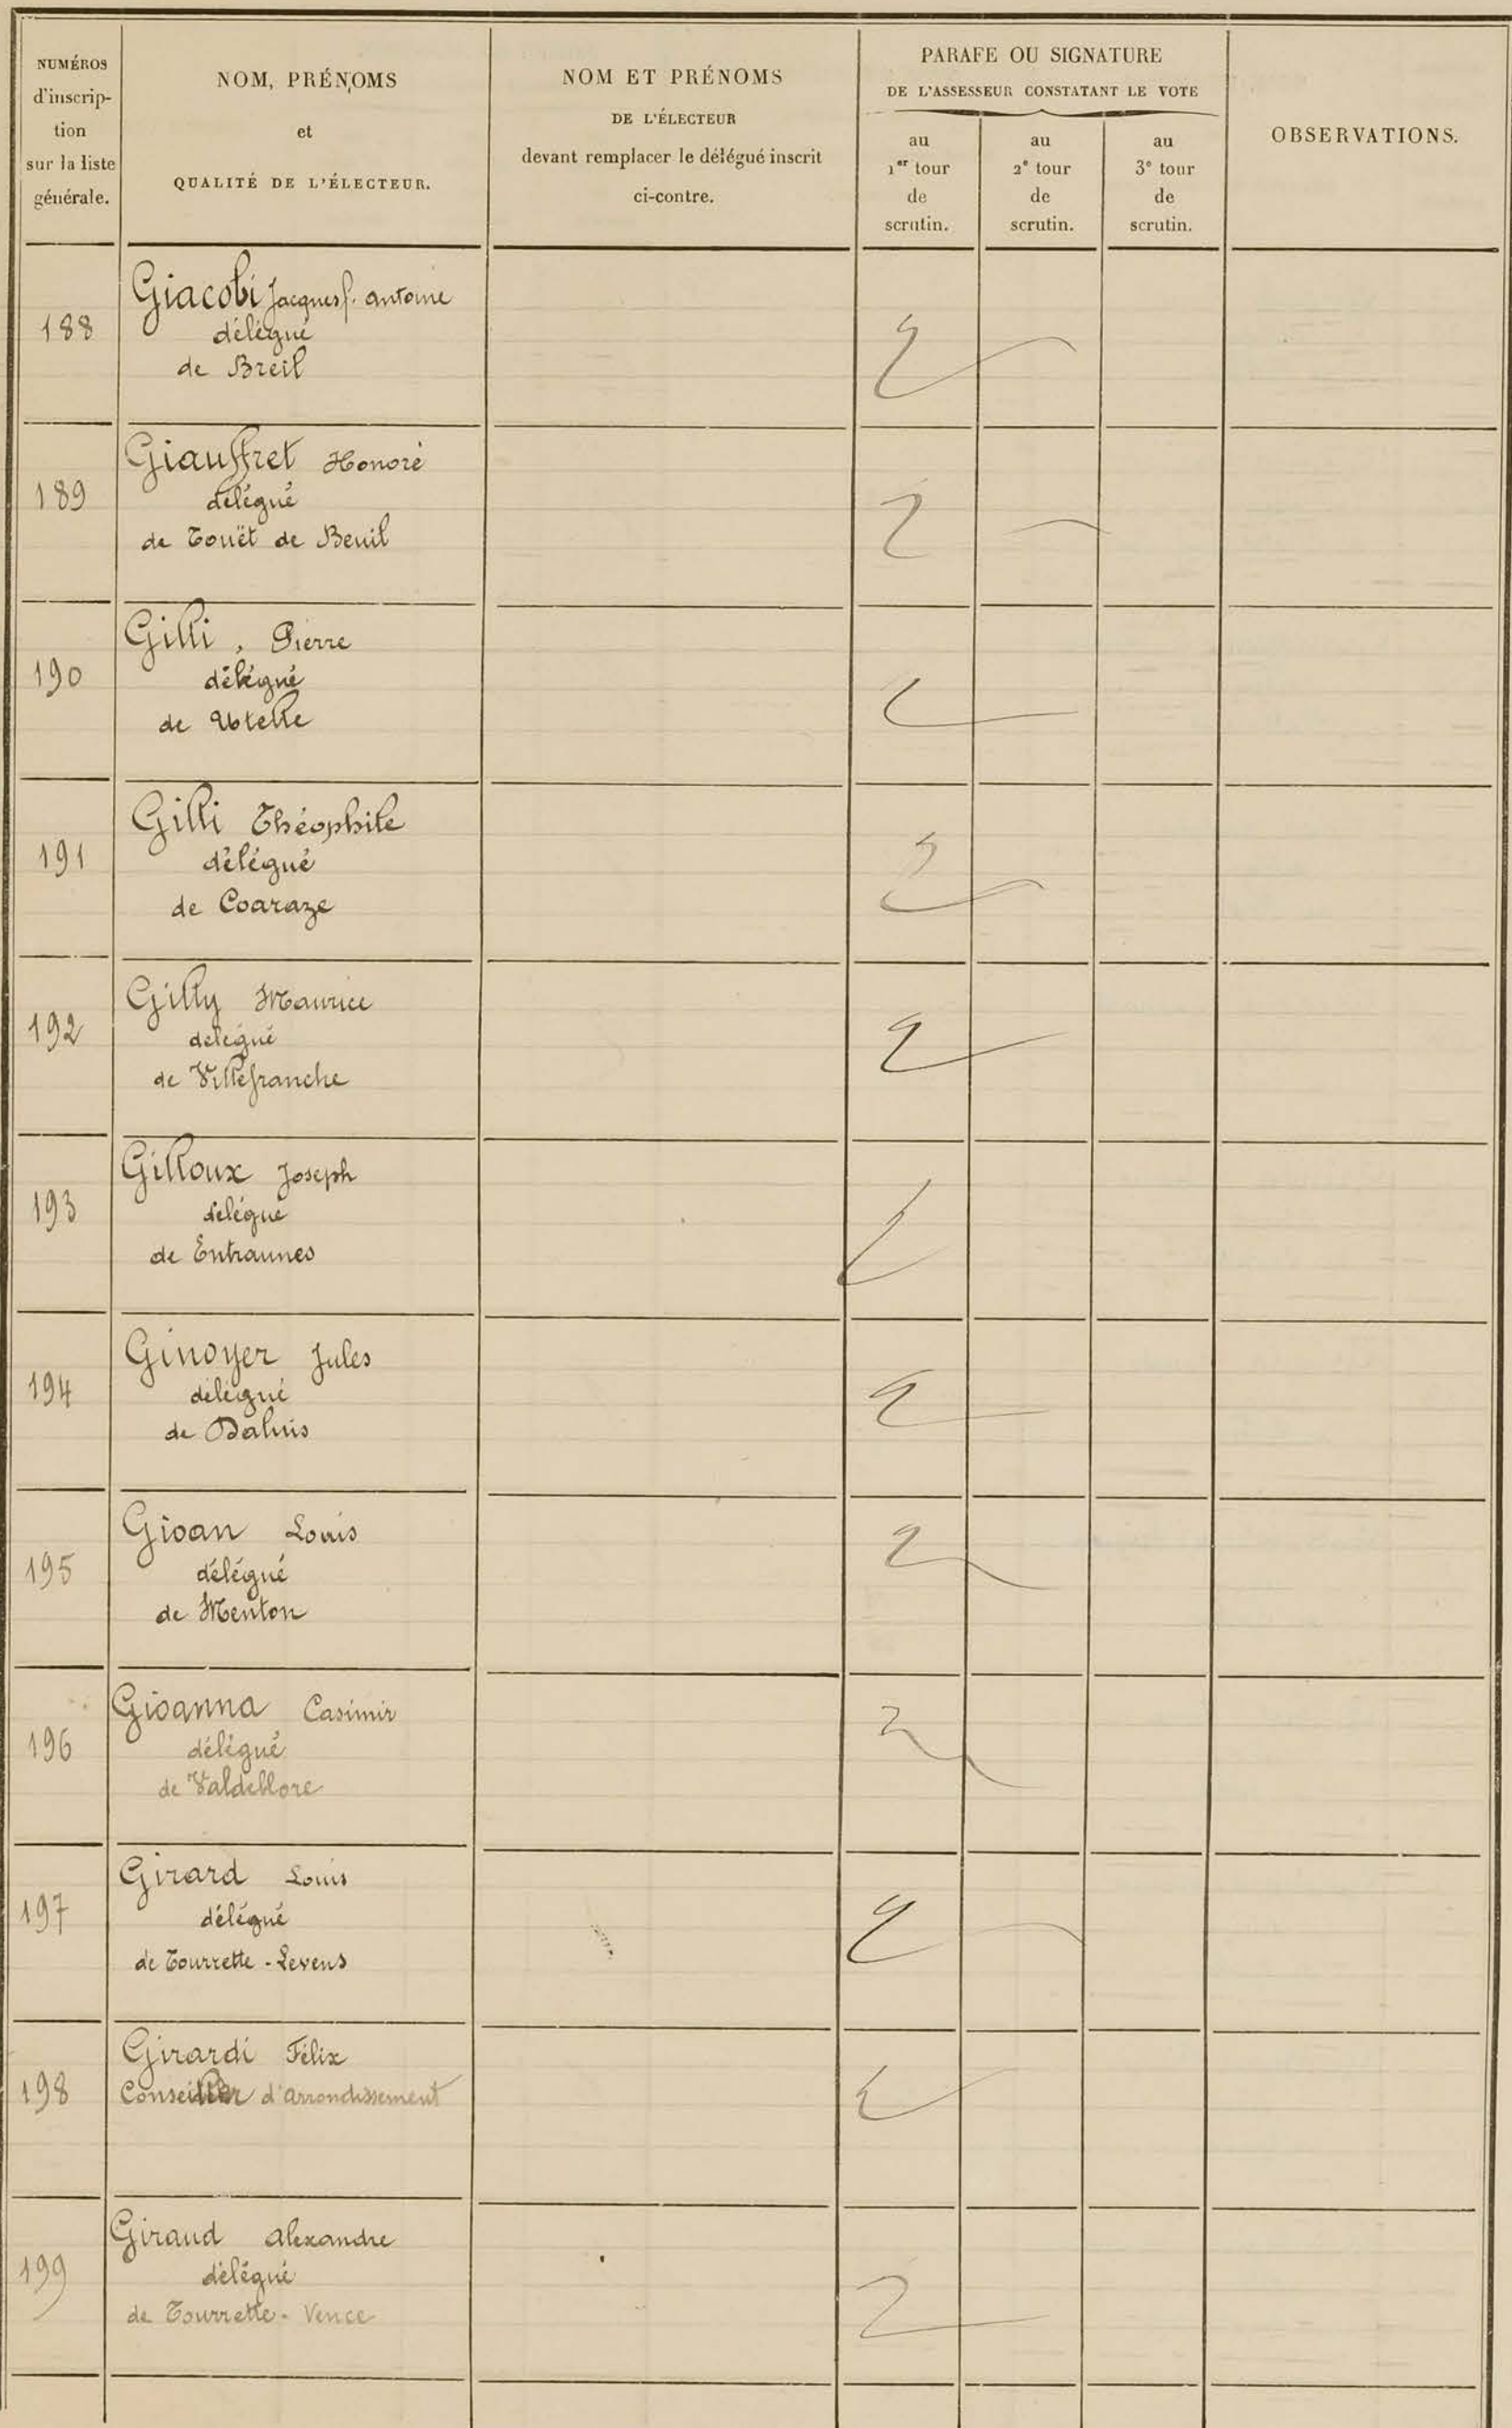 NUMÉROS
d'inscrip-
tion
sur la liste
générale.
NOM, PRÉNOMS
et
QUALITÉ DE L'ÉLECTEUR.
NOM ET PRÉNOMS
DE L'ÉLECTEUR
devant remplacer le délégué inscrit
ci-contre.
PARAFE OU SIGNATURE
DE L'ASSESSEUR CONSTATANT LE VOTE
au
1er tour
de
scrutin.
au
2e tour
de
scrutin.
au
3e tour
de
scrutin.
OBSERVATIONS.
188
Giacobi Jacques f. antoine
délégué
de Breil
189
Giauffret Honoré
délégué
de Touët de Beuil
190
Gilli, Pierre
délégué
de Utelle
191
Gilli Théophile
délégué
de Coaraze
192
Gilly Maurice
délégué
de Villefranche
193
Gilloux Joseph
délégué
de Entraunes
194
Ginoyer Jules
délégué
de Daluis
195
Gioan Louis
délégué
de Menton
196
Gioanna Casimir
délégué
de Valdeblore
197
Girard Louis
délégué
de Tourrette-Levens
198
Girardi Félix
Conseiller d'arrondissement
199
Giraud alexandre
délégué
de Tourrette-Vence